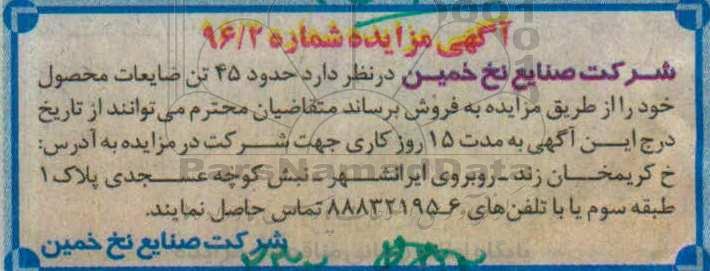 آگهی مزایده شماره ۹۶/۲
شرکت صنایع نخ خمین درنظر دارد حدود ۴۵ تن ضایعات محصول
خود را از طریق مزایده به فروش برساند متقاضیان محترم می‌توانند از تاریخ
درج ایـن آگهی به مدت ۱۵ روز کاری جهت شـرکت در مزایده به آدرس:
خ کریمخـان زند ـ روبروی ایرانشـهر ـ نبش کوچه عسـجدی پلاک ۱
طبقه سوم یا با تلفن‌های ۶ـ۸۸۸۳۲۱۹۵ تماس حاصل نمایند.
شرکت صنایع نخ خمین
ParsNamadData